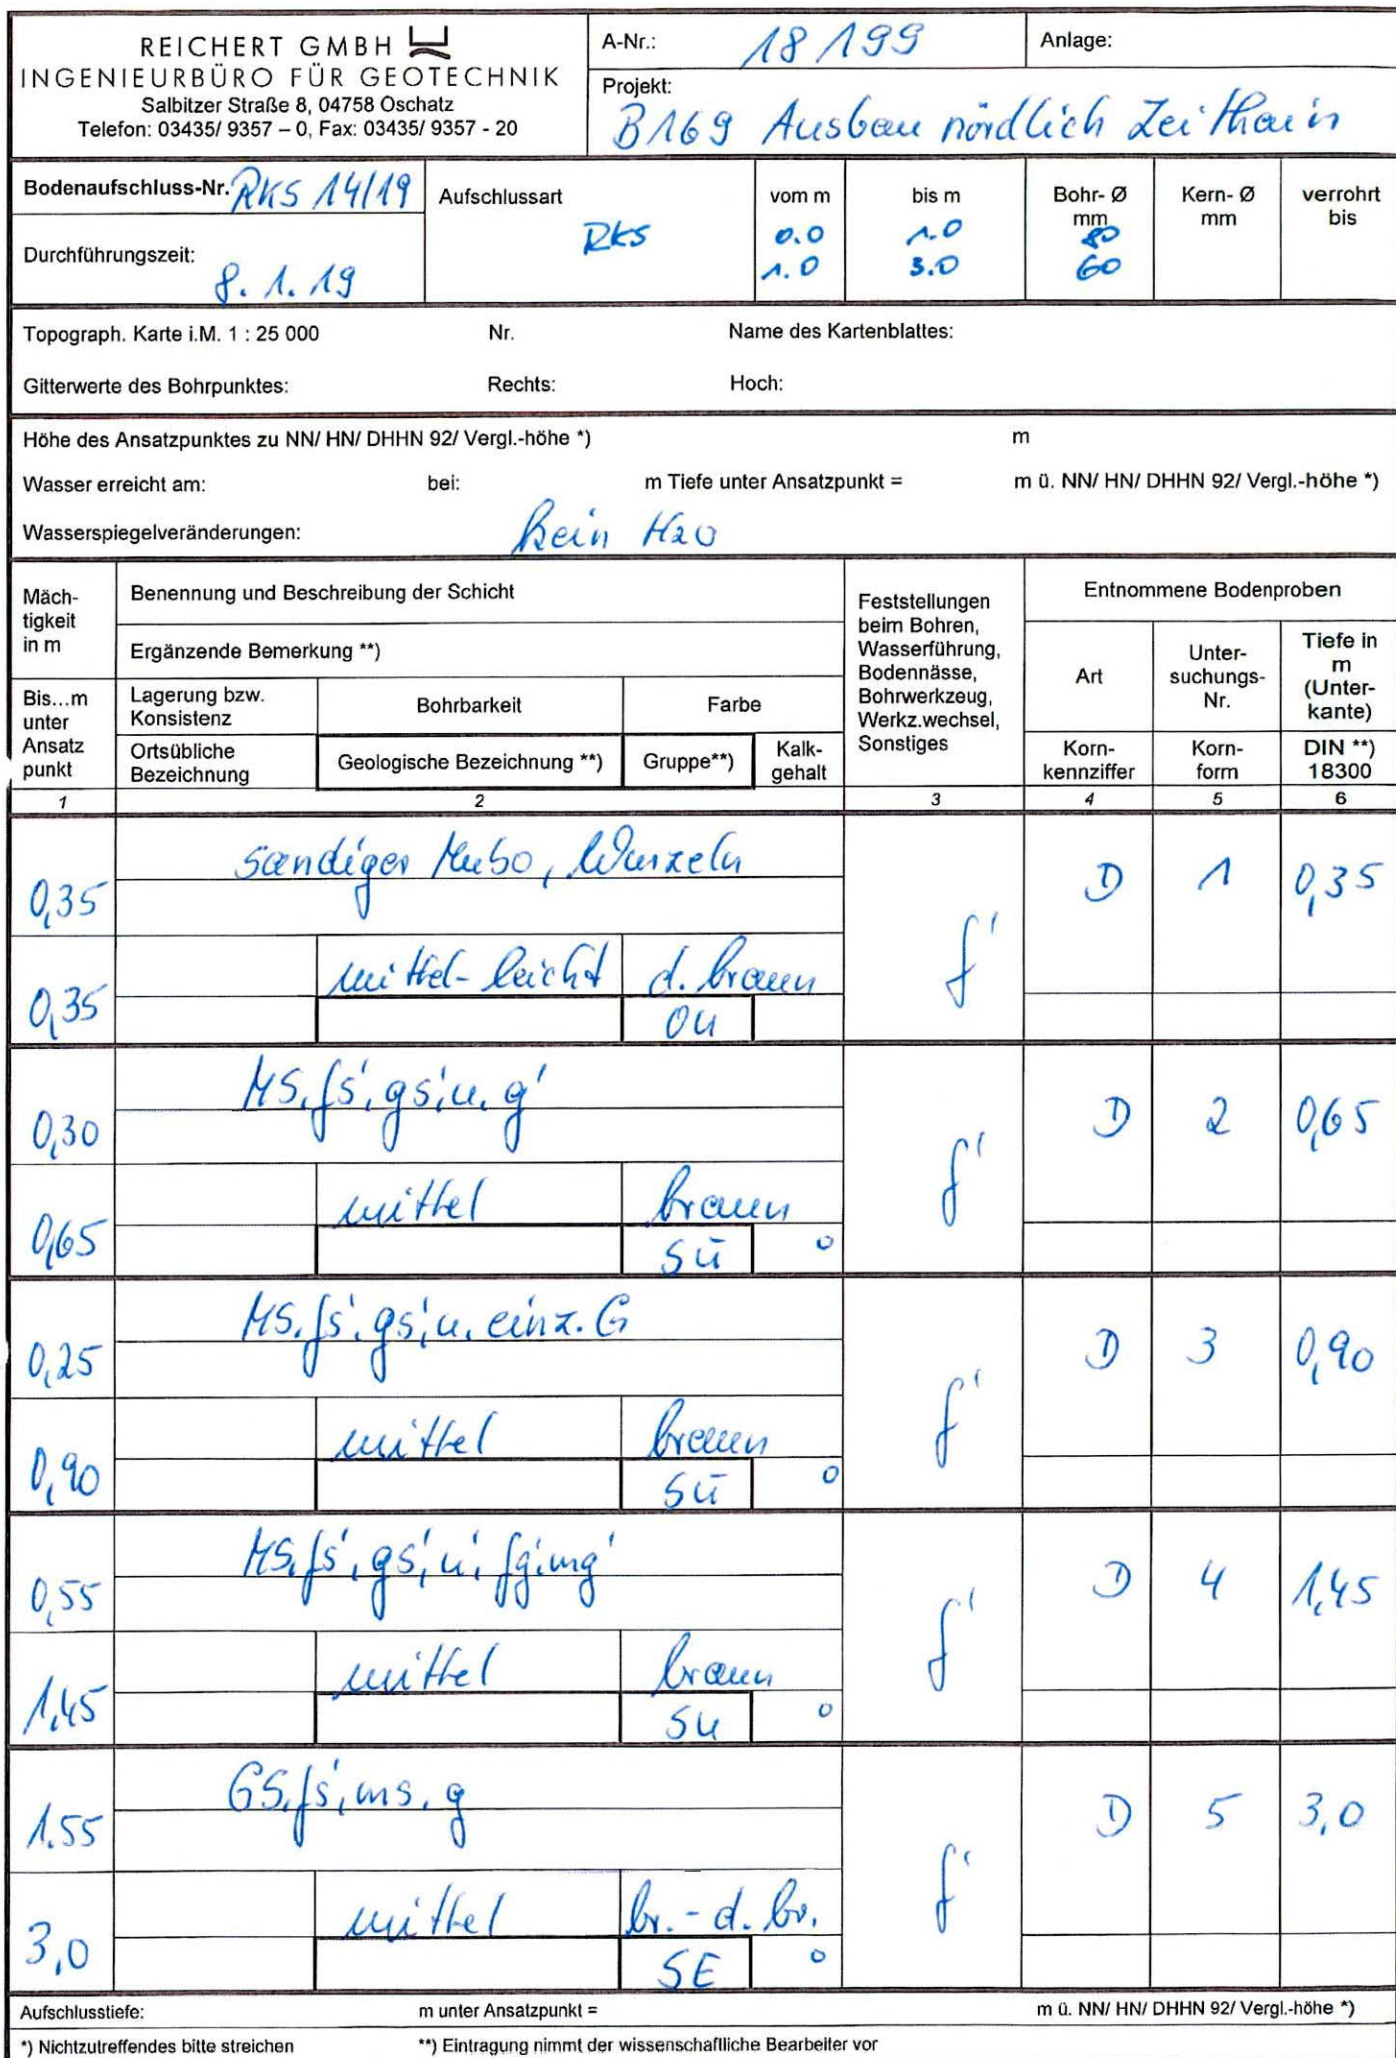 REICHERT GMBH
INGENIEURBÜRO FÜR GEOTECHNIK
Salbitzer Straße 8, 04758 Oschatz
Telefon: 03435/ 9357 – 0, Fax: 03435/ 9357 - 20
A-Nr.: 18 199 Anlage:
Projekt:
B169 Ausbau nördlich Zeithain
Bodenaufschluss-Nr. RKS 14/19
Durchführungszeit:
8.1.19
Aufschlussart vom m bis m Bohr- Ø mm Kern- Ø mm verrohrt bis
RKS 0.0 1.0 80
1.0 3.0 60
Topograph. Karte i.M. 1 : 25 000 Nr. Name des Kartenblattes:
Gitterwerte des Bohrpunktes: Rechts: Hoch:
Höhe des Ansatzpunktes zu NN/ HN/ DHHN 92/ Vergl.-höhe *) m
Wasser erreicht am: bei: m Tiefe unter Ansatzpunkt = m ü. NN/ HN/ DHHN 92/ Vergl.-höhe *)
Wasserspiegelveränderungen: kein H2O
Mäch-
tigkeit
in m
Bis...m
unter
Ansatz
punkt
Benennung und Beschreibung der Schicht
Ergänzende Bemerkung **)
Lagerung bzw.
Konsistenz
Bohrbarkeit
Farbe
Ortsübliche
Bezeichnung
Geologische Bezeichnung **)
Gruppe**)
Kalk-
gehalt
Feststellungen
beim Bohren,
Wasserführung,
Bodennässe,
Bohrwerkzeug,
Werkz.wechsel,
Sonstiges
Entnommene Bodenproben
Art
Unter-
suchungs-
Nr.
Tiefe in
m
(Unter-
kante)
Korn-
kennziffer
Korn-
form
DIN **)
18300
1 2 3 4 5 6
sandiger Mubo, Wurzeln
0,35 f' D 1 0,35
mittel-leicht d. braun
0,35 OU
MS, fs', gs', u, g'
0,30 f' D 2 0,65
mittel braun
0,65 SŪ o
MS, fs', gs', u, einz. G
0,25 f' D 3 0,90
mittel braun
0,90 SŪ o
MS, fs', gs', u', fg', mg'
0,55 f' D 4 1,45
mittel braun
1,45 SU o
GS, fs', ms, g
1.55 f' D 5 3,0
mittel br. - d. br.
3,0 SE o
Aufschlusstiefe: m unter Ansatzpunkt = m ü. NN/ HN/ DHHN 92/ Vergl.-höhe *)
*) Nichtzutreffendes bitte streichen **) Eintragung nimmt der wissenschaftliche Bearbeiter vor